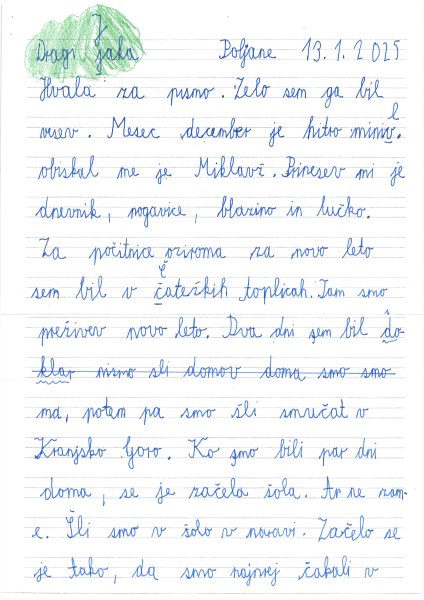 Dragi Jaka Poljane 13.1.2025
Hvala za pismo. Zelo sem ga bil
vesev. Mesec december je hitro minil.
obiskal me je Miklavž. Prinesev mi je
dnevnik, nogavice, blazino in lučko.
Za počitnice oziroma za novo leto
sem bil v Čateških toplicah. Tam smo
preživev novo leto. Dva dni sem bil do-
klar nismo sli domov doma smo smo
ma, potem pa smo šli smučat v
Kranjsko Goro. Ko smo bili par dni
doma, se je začela šola. Ar ne zam-
e. Šli smo v šolo v naravi. Začelo se
je tako, da smo najprej čakali v